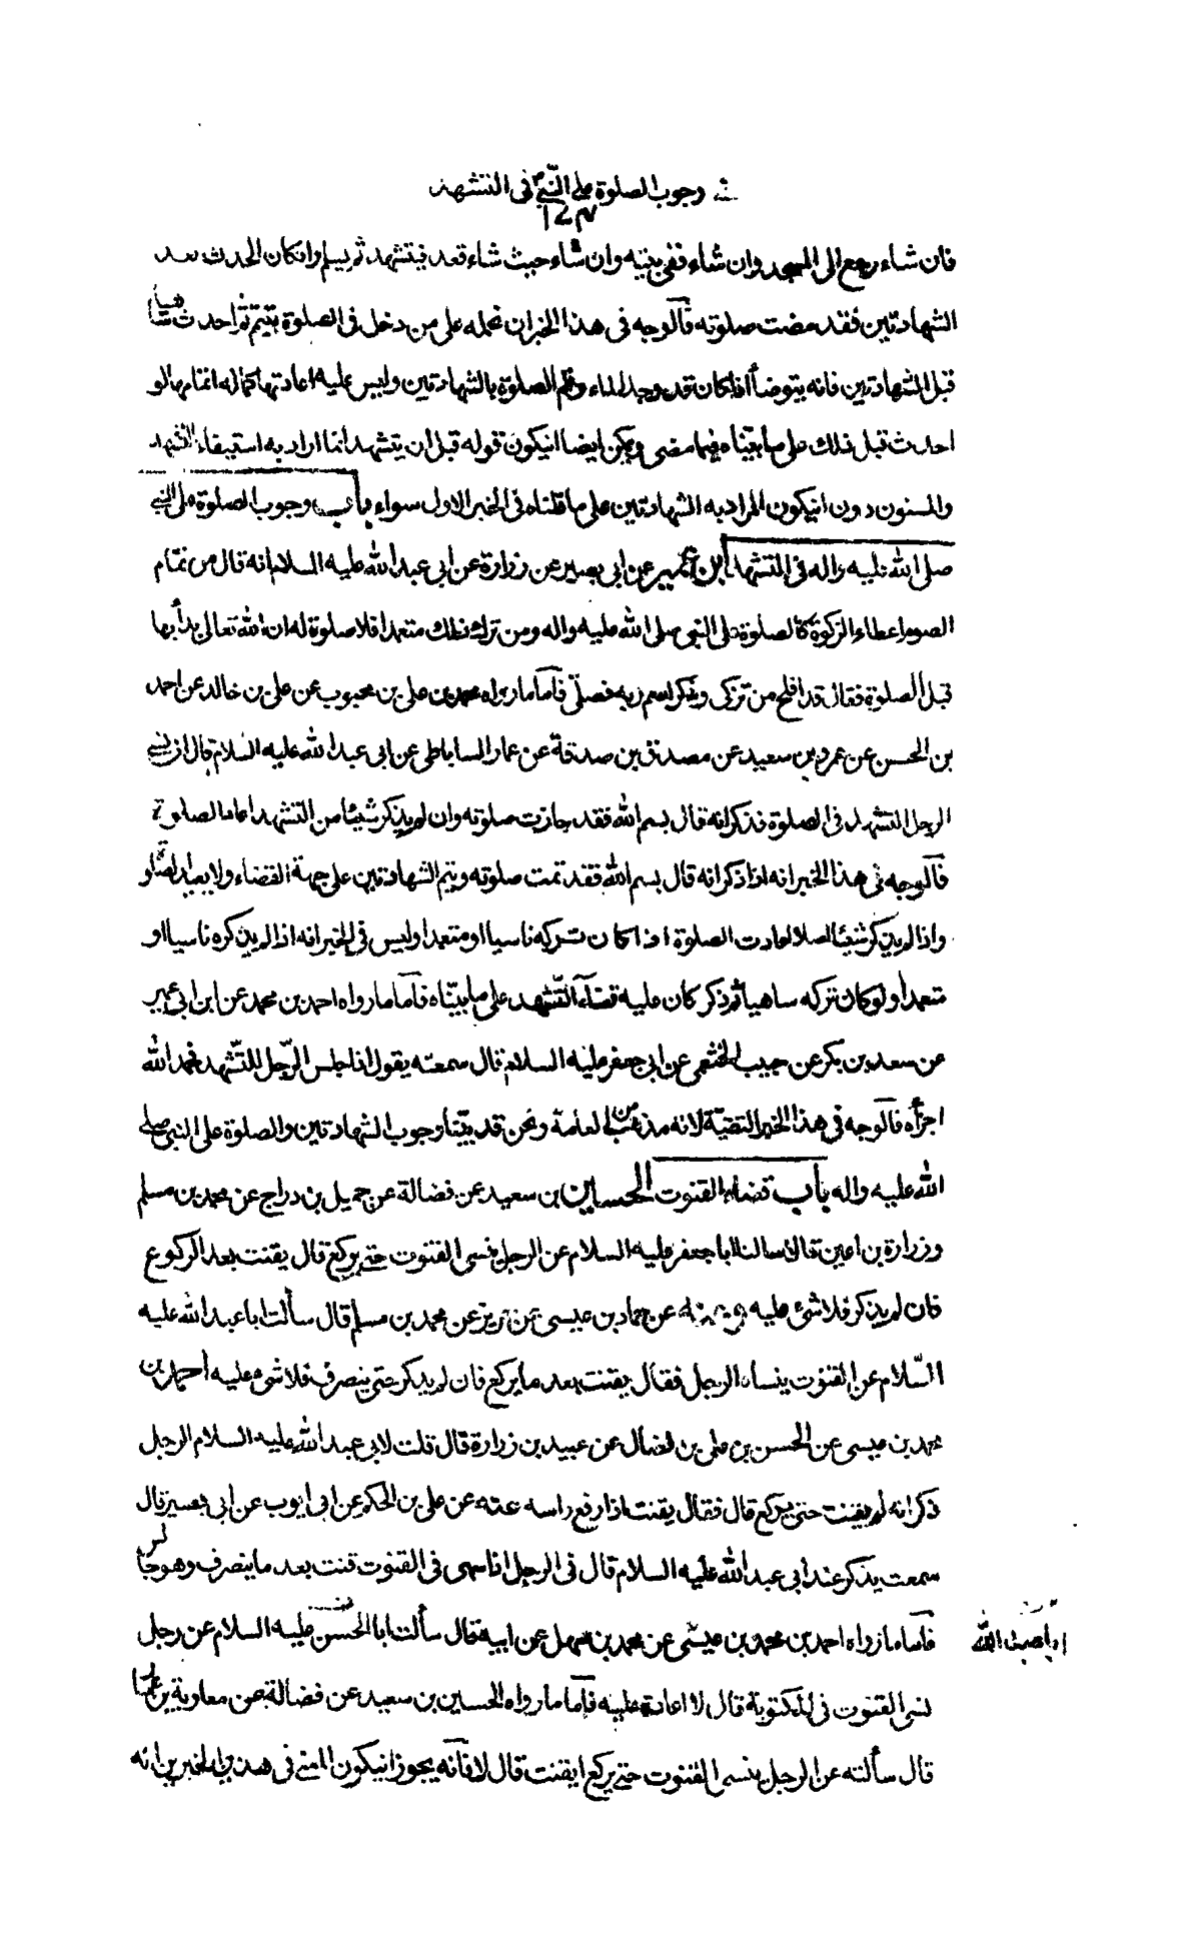 في وجوب الصلوة على النبيّ في التشهد
١٧٣
فان شاء رجع الى المسجد وان شاء ففي بيته وان شاء حيث شاء قعد فيتشهد ثم يسلم وانكان الحدث بعد
الشهادتين فقد مضت صلوته فآلوجه في هذا الخبر ان نحمله على من دخل في الصلوة بتيمم ثم احدث ساهيا
قبل الشهادتين فانه يتوضأ اذا كان قد وجد الماء ويتم الصلوة بالشهادتين وليس عليه اعادتها كما له اتمامها لو
احدث قبل ذلك على ما بيّناه فيما مضى ويمكن ايضا انيكون قوله قبل ان يتشهد انما اراد به استيفاء التشهد
والمسنون دون انيكون المراد به الشهادتين على ما قلناه في الخبر الاول سواء باب وجوب الصلوة على النبي
صلى الله عليه واله في التشهد ابن عمير عن ابي بصير عن زرارة عن ابي عبد الله عليه السلام انه قال من تمام
الصوم اعطاء الزكوة كالصلوة على النبي صلى الله عليه واله ومن ترك ذلك متعمدا فلا صلوة له ان الله تعالى بدأ بها
قبل الصلوة فقال قد افلح من تزكى وذكر اسم ربه فصلّى فآما ما رواه محمد بن علي بن محبوب عن علي بن خالد عن احمد
بن الحسن عن عمرو بن سعيد عن مصدق بن صدقة عن عمار الساباطي عن ابي عبد الله عليه السلام قال ان نسي
الرجل التشهد في الصلوة فذكر انه قال بسم الله فقد جازت صلوته وان لم يذكر شيئا من التشهد اعاد الصلوة
فآلوجه في هذا الخبر انه اذا ذكر انه قال بسم الله فقد تمت صلوته ويتم الشهادتين على جهة القضاء ولا يعيد الصلوة
واذا لم يذكر شيئا اصلا اعاد الصلوة اذا كان تركه ناسيا او متعمدا وليس في الخبر انه اذا لم يذكره ناسيا او
متعمدا ولو كان تركه ساهيا ثم ذكر كان عليه قضآء التشهد على ما بيّناه فآما ما رواه احمد بن محمد عن ابن ابي عمير
عن سعد بن بكر عن حبيب الخثعمي عن ابي جعفر عليه السلام قال سمعته يقول اذا جلس الرّجل للتّشهد فحمد الله
اجزأه فآلوجه في هذا الخبر التقيّة لانه مذهب العامّة ونحن قد بيّنا وجوب الشهادتين والصلوة على النبي صلى
الله عليه واله باب قضاء القنوت الحسين بن سعيد عن فضالة عن جميل بن دراج عن محمد بن مسلم
وزرارة بن اعين قالا سالنا ابا جعفر عليه السلام عن الرجل ينسى القنوت حتى يركع قال يقنت بعد الركوع
فان لم يذكر فلا شيء عليه عنه عن حماد بن عيسى عن حريز عن محمد بن مسلم قال سألت ابا عبد الله عليه
السّلام عن القنوت ينساه الرجل فقال يقنت بعد ما يركع فان لم يذكر حتى ينصرف فلا شيء عليه احمد بن
محمد بن عيسى عن الحسن بن علي بن فضال عن عبيد بن زرارة قال قلت لابي عبد الله عليه السلام الرجل
ذكر انه لم يقنت حتى يركع قال فقال يقنت اذا رفع راسه عنه عن علي بن الحكم عن ابي ايوب عن ابي بصير قال
سمعت يذكر عند ابي عبد الله عليه السلام قال في الرجل اذا سهى في القنوت قنت بعد ما ينصرف وهو جالس
فآما ما رواه احمد بن محمد بن عيسى عن محمد بن سهل عن ابيه قال سألت ابا الحسن عليه السلام عن رجل
نسي القنوت في المكتوبة قال لا اعادة عليه فآما ما رواه الحسين بن سعيد عن فضالة عن معاوية بن عمار
قال سألته عن الرجل ينسى القنوت حتى يركع ايقنت قال لا فآنه يجوز انيكون المنفي في هذين الخبرين انه